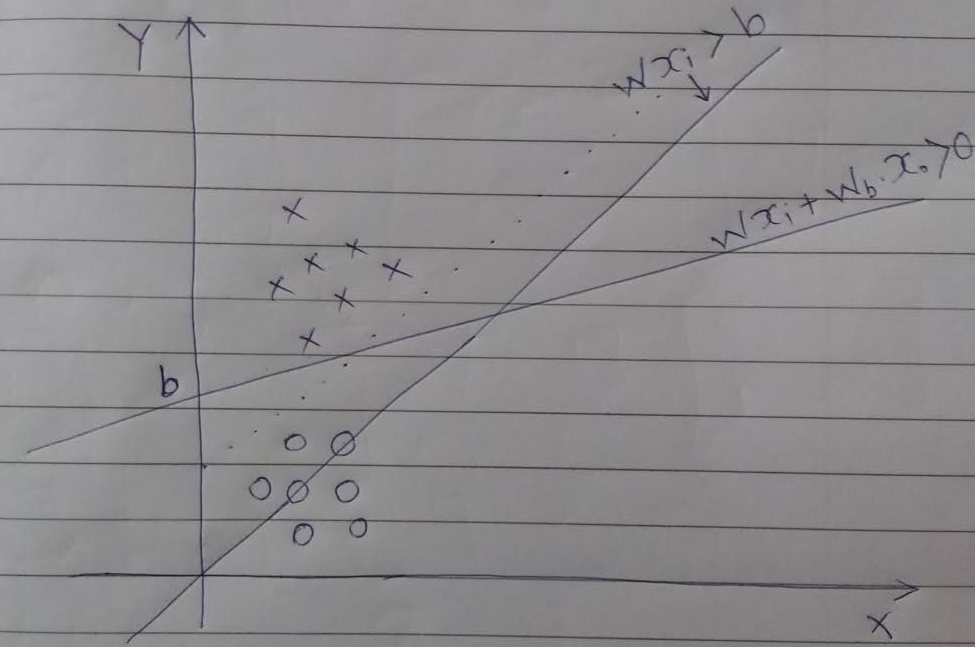 Y
Wxᵢ > b
Wxᵢ + W_b.x₀ > 0
b
X